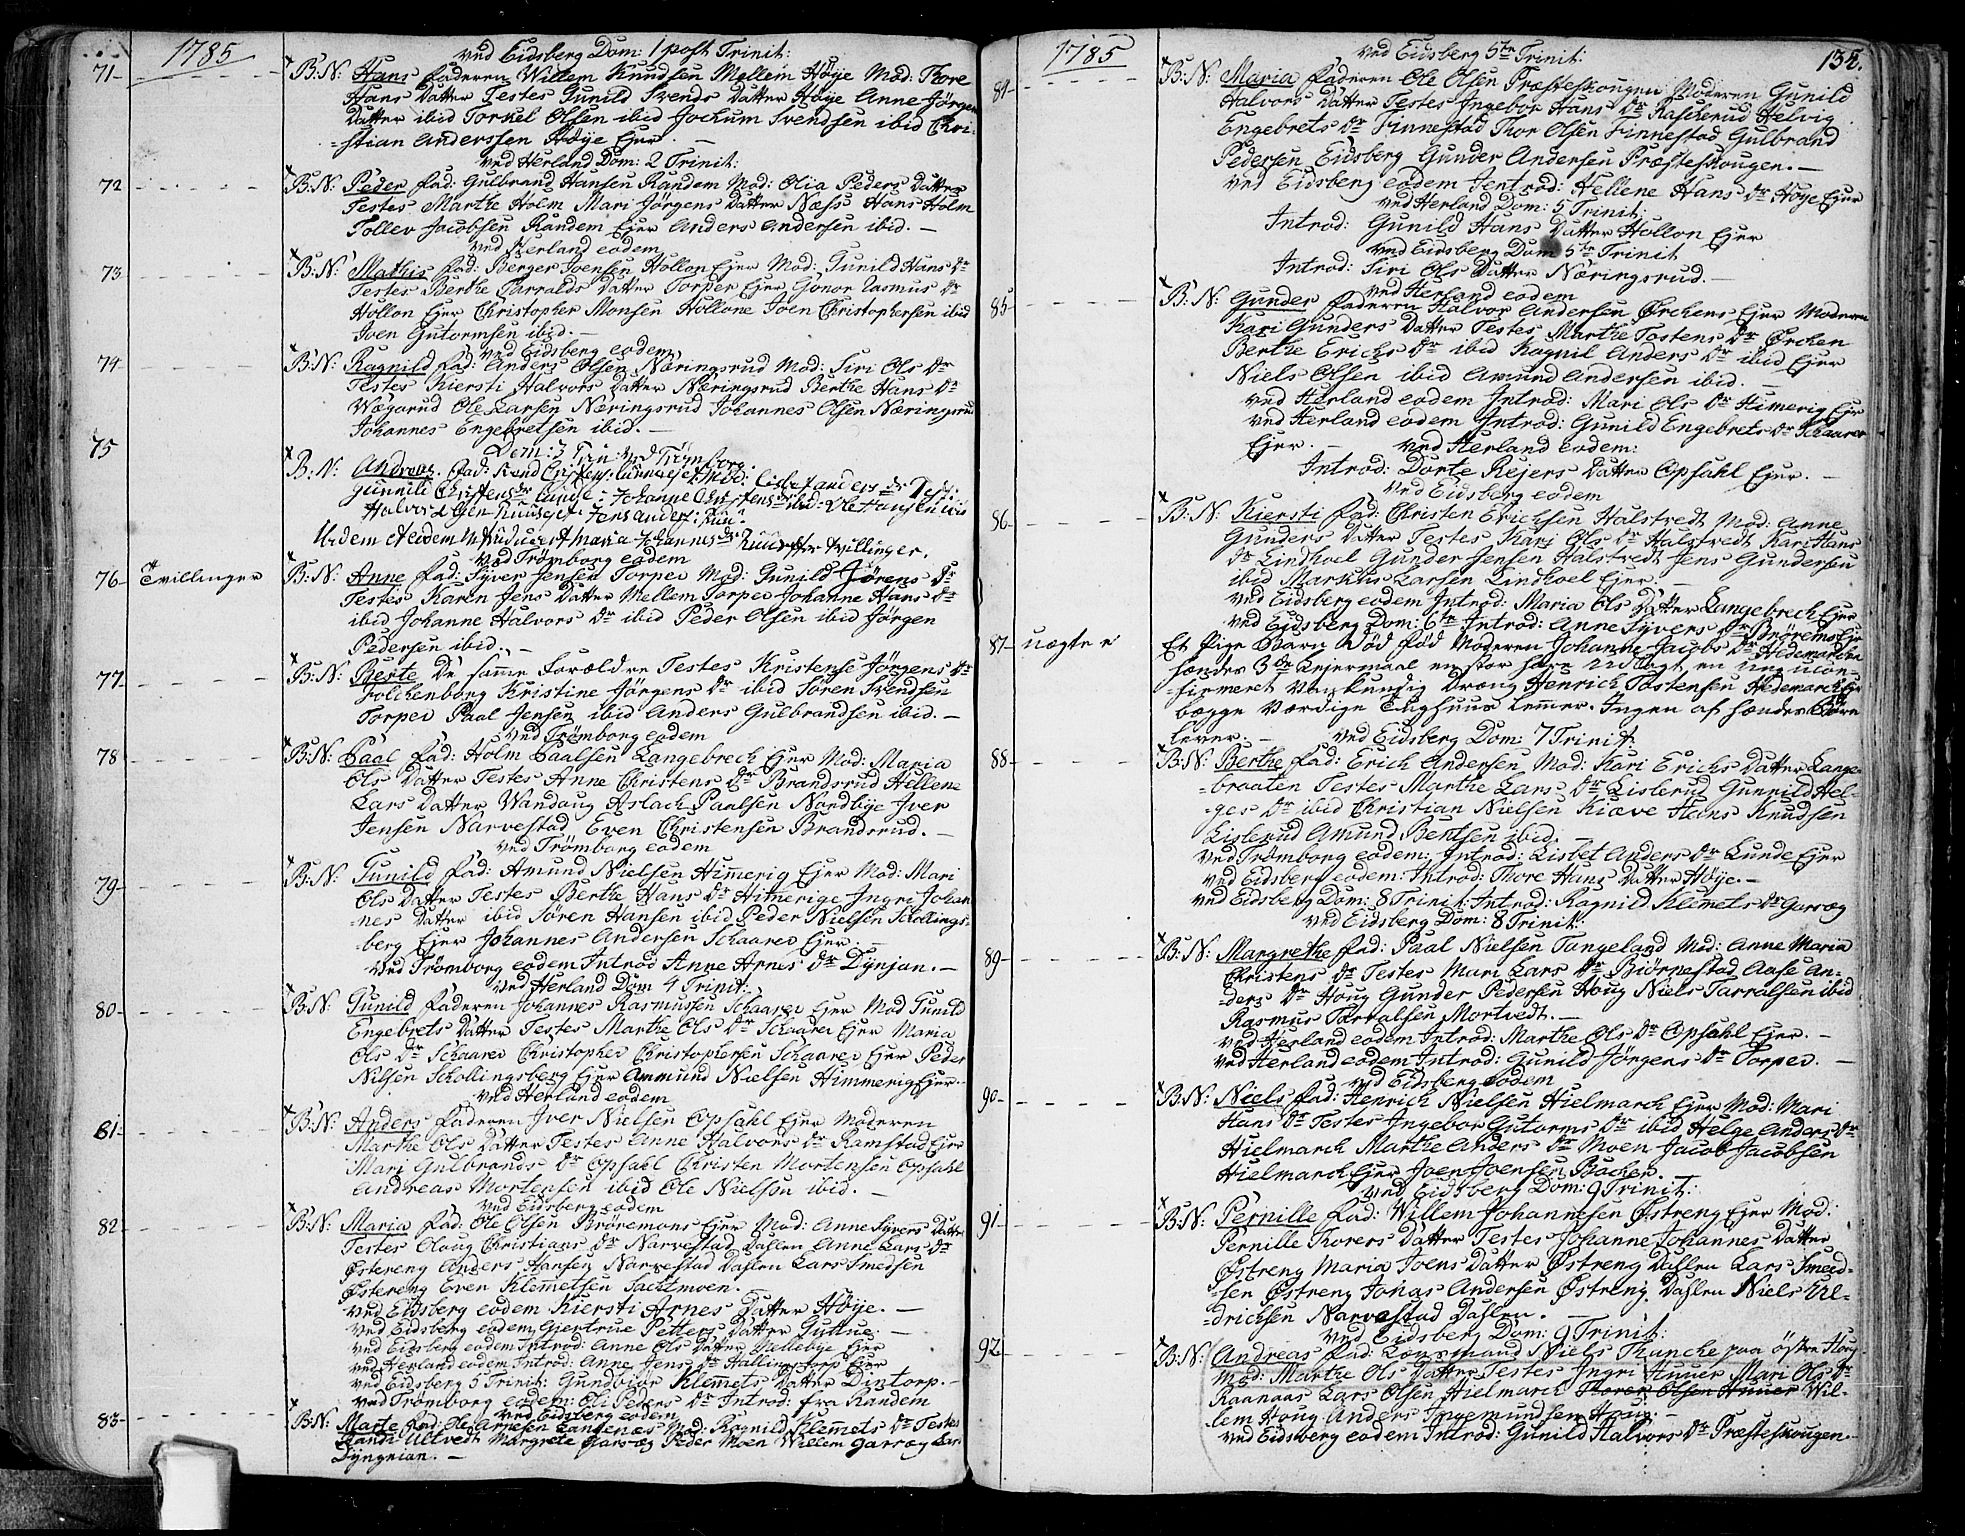 1785
ved Eidsberg Dom: 1 post Trinit:
71 B:N: Hans faderen Willem Knudsen Mellem Høye Mod: Thore
Hans Datter Testes Gunild Svends Datter Høye Anne Jørgens
Datter ibid Torkel Olsen ibid Jochum Svendsen ibid Chri-
-stian Anderssen Høye Ejer
ved Herland Dom: 2 Trinit:
72 B:N: Peder fad: Gulbrand Hansen Randem Mod: Olia Peders Datter
Testes Marthe Holm Mari Jørgens Datter Næss Hans Holm
Tollev Jacobsen Randem Ejer Anders Andersen ibid. —
ved Herland eodem
73 B:N: Mathis fad: Berger Joensen Hollon Ejer Mod: Gunild Hans Dr
Testes Berthe Harralds Datter Torper Ejer Gonor Rasmus Dr
Hollon Ejer Christopher Monsen Hollone Joen Christophersen ibid
Joen Gutormsen ibid. —
ved Eidsberg eodem
74 B:N: Ragnild fad: Anders Olsen Næringsrud Mod: Siri Ols Dr
Testes Kiersti Halvors Datter Næringsrud Berthe Hans Dr
Wægarud Ole Larsen Næringsrud Johannes Olsen Næringsrud
Johannes Engebretsen ibid. —
Dom: 3 Trin: ved Trømborg
75 B:N: Andreas fad: Mod: Lisbet Anders Dr Test:
Gunnild Christens Dr Lunde: Johanne Christens Dr ibid: Ole Hansen ibid
Halvor Jens Anders:
Maria Johannes Dr tvillinger.
ved Trømborg eodem
76 Tvillinger B:N: Anne fad: Syver Jensen Torper Mod: Gunild Jørens Dr
Testes Karen Jens Datter Mellem Torper Johanne Hans Dr
ibid Johanne Halvors Dr ibid Peder Olsen ibid Jørgen
Pedersen ibid. —
77 B:N: Berte De samme Forældre Testes Kristense Jørgens Dr
Folckenborg Kristine Jørgens Dr ibid Søren Svendsen
Torper Paal Jensen ibid Anders Gulbrandsen ibid. —
ved Trømborg eodem
78 B:N: Paal fad: Holm Paalsen Langebrech Ejer Mod: Maria
Ols Datter Testes Anne Christens Dr Brandsrud Hellene
Lars Datter Wandaug Aslach Paalsen Nordbye Iver
Jensen Narvestad Even Christensen Brandsrud. —
ved Trømborg eodem
79 B:N: Gunild fad: Amund Nielsen Himerig Ejer Mod: Mari
Ols Datter Testes Berthe Hans Dr Himerige Ingri Johan-
-nes Datter ibid Søren Hansen ibid Peder Nielsen Schollings-
-berg Ejer Johannes Andersen Schaarer Ejer. —
ved Trømborg eodem Introd Anne Arnes Dr Dynjan. —
ved Herland Dom 4 Trinit:
80 B:N: Gunild faderen Johannes Rasmussen Schaarer Ejer Mod Gunild
Engebrets Datter Testes Marthe Ols Dr Schaarer Ejer Maria
Ols Dr Schaarer Christopher Christophersen Schaarer Ejer Peder
Nilsen Schollingsberg Ejer Ammund Nielsen Himmerig Ejer.
ved Herland eodem
81 B:N: Anders faderen Iver Nielsen Opsahl Ejer Moderen
Marthe Ols Datter Testes Anne Halvors Dr Ramstad Ejer
Mari Gulbrands Dr Opsahl Christen Mortensen Opsahl
Andreas Mortensen ibid Ole Nielsen ibid. —
ved Eidsberg eodem
82 B:N: Maria fad: Ole Olsen Brøremons Ejer Mod: Anne Syvers Datter
Testes Olaug Christians Dr Narvestad Dahlen Anne Lars Dr
Østereng Anders Hansen Narvestad Dahlen Lars Smedsen
Østereng Even Klemetsen Sachtmoen.
ved Eidsberg eodem Kiersti Arnes Datter Høye. —
ved Eidsberg eodem Giertrue Petters Datter
ved Eidsberg eodem Introd: Anne Ols Datter Mellebye Ejer
ved Herland eodem Introd: Anne Jens Dr Hallingstorp Ejer
ved Eidsberg 5 Trinit: Gundbior Klemets Datter Dintorp. —
ved Trømborg eodem: Oli Peders Dr Introd: fra Randem
ved Eidsberg eodem
83 B:N: Marte fad: Ole Arnesen Sandenæs Mod: Ragnild Klemets Dr Testes
Randi Ultvedt Margrete Garsæg Peder Moen Willem Garsæg Lars
Dyngeian. —
1785
135.
ved Eidsberg 5te Trinit:
84 B:N: Maria faderen Ole Olsen Præsteskougen Moderen Gunild
Halvors Datter Testes Ingebor Hans Dr Raskerud Helvig
Engebrets Dr Finnestad Thor Olsen Finnestad Gulbrand
Pedersen Eidsberg Gunder Andersen Præsteskougen. —
ved Eidsberg eodem Introd: Hellene Hans Dr Høye Ejer
ved Herland Dom: 5 Trinit:
Introd: Gunild Hans Datter Hollon Ejer
ved Eidsberg Dom 5te Trinit
Introd: Siri Ols Datter Næringsrud. —
ved Herland eodem
85 B:N: Gunder faderen Halvor Andersen Ørchens Ejer Moderen
Kari Gunders Datter Testes Marthe Tostens Dr Ørchen
Berthe Erichs Dr ibid Ragnil Anders Dr ibid Ejer
Niels Olsen ibid Amund Andersen ibid. —
ved Herland eodem Introd: Mari Ols Dr Himerig Ejer
ved Herland eodem Introd: Gunild Engebrets Dr Schaarer
Ejer. — ved Herland eodem:
Introd: Dorte Rejers Datter Opsahl Ejer. —
ved Eidsberg eodem
86 B:N: Kiersti fad: Christen Erichsen Halstvedt Mod: Anne
Gunders Datter Testes Kari Ols Dr Halstvedt Kari Hans
Dr Lindhoel Gunder Jensen Halstvedt Jens Gundersen
ibid Markus Larsen Lindhoel Ejer. —
ved Eidsberg eodem Introd: Maria Ols Datter Langebrech Ejer
ved Eidsberg Dom: 6te Introd: Anne Syvers Dr Brøremo Ejer
87 uægte Et Pige Barn Død fød Moderen Johanne Jacobs Dr Hedemarchen
hændes 3de Lejermaal en stor hore udlagt en ung ucon-
-firmeret vankundig Dræng Henrich Tostensen Hedemarch Ejer
begge Værdige Tughuus Lemmer. Ingen af hændes Børn
lever. — ved Eidsberg Dom: 7 Trinit
88 B:N: Berthe fad: Erich Andersen Mod: Kari Erichs Datter Lange-
-braaten Testes Marthe Lars Dr Listerud Gunnild Hel-
-ges Dr ibid Christian Nielsen Kiæve Hans Knudsen
Listerud Amund Bentsen ibid. —
ved Trømborg eodem: Introd: Lisbet Anders Dr Lunde Ejer
ved Eidsberg eodem: Introd: Thore Hans Datter Høye. —
ved Eidsberg Dom: 8 Trinit: Introd: Ragnild Klemets Dr Garsæg
ved Eidsberg Dom: 8 Trinit:
89 B:N: Margrethe fad: Paal Nielsen Tangeland Mod: Anne Maria
Christens Dr Testes Mari Lars Dr Biørnestad Aase An-
-ders Dr Houg Gunder Pedersen Houg Niels Tarralsen ibid
Rasmus Tarralsen Mortvedt. —
ved Herland eodem Introd: Marthe Ols Dr Opsahl Ejer. —
ved Herland eodem Introd: Gunild Jørgens Dr Torper. —
ved Eidsberg eodem
90 B:N: Niels fad: Henrich Nielsen Hielmarch Ejer Mod: Mari
Hans Dr Testes Ingebor Gutorms Dr ibid Helge Anders Dr
Hielmarch Marthe Anders Dr Moen Jacob Jacobsen
Hielmarch Ejer Joen Joensen Backen.
ved Eidsberg Dom: 9 Trinit:
91 B:N: Pernille fad: Willem Johannesen Østreng Ejer Mod:
Pernille Thorers Datter Testes Johanne Johannes Datter
Østreng Maria Joens Datter Østreng Dahlen Lars Smed-
-sen Østreng Jonas Andersen Østreng Dahlen Niels Ul-
-drichsen Narvestad Dahlen. —
ved Eidsberg Dom: 9 Trinit:
92 B:N: Andreas fad: Lænsmand Niels Munche paa østre Houg
Mod: Marthe Ols Datter Testes Ingri Huuer Mari Ols Dr
Raanaas Lars Olsen Hielmarch Thorer Olsen Huuer Wil-
lem Houg Anders Ingemundsen Houg. —
ved Eidsberg eodem Introd: Gunild Halvors Dr Præsteskougen. —